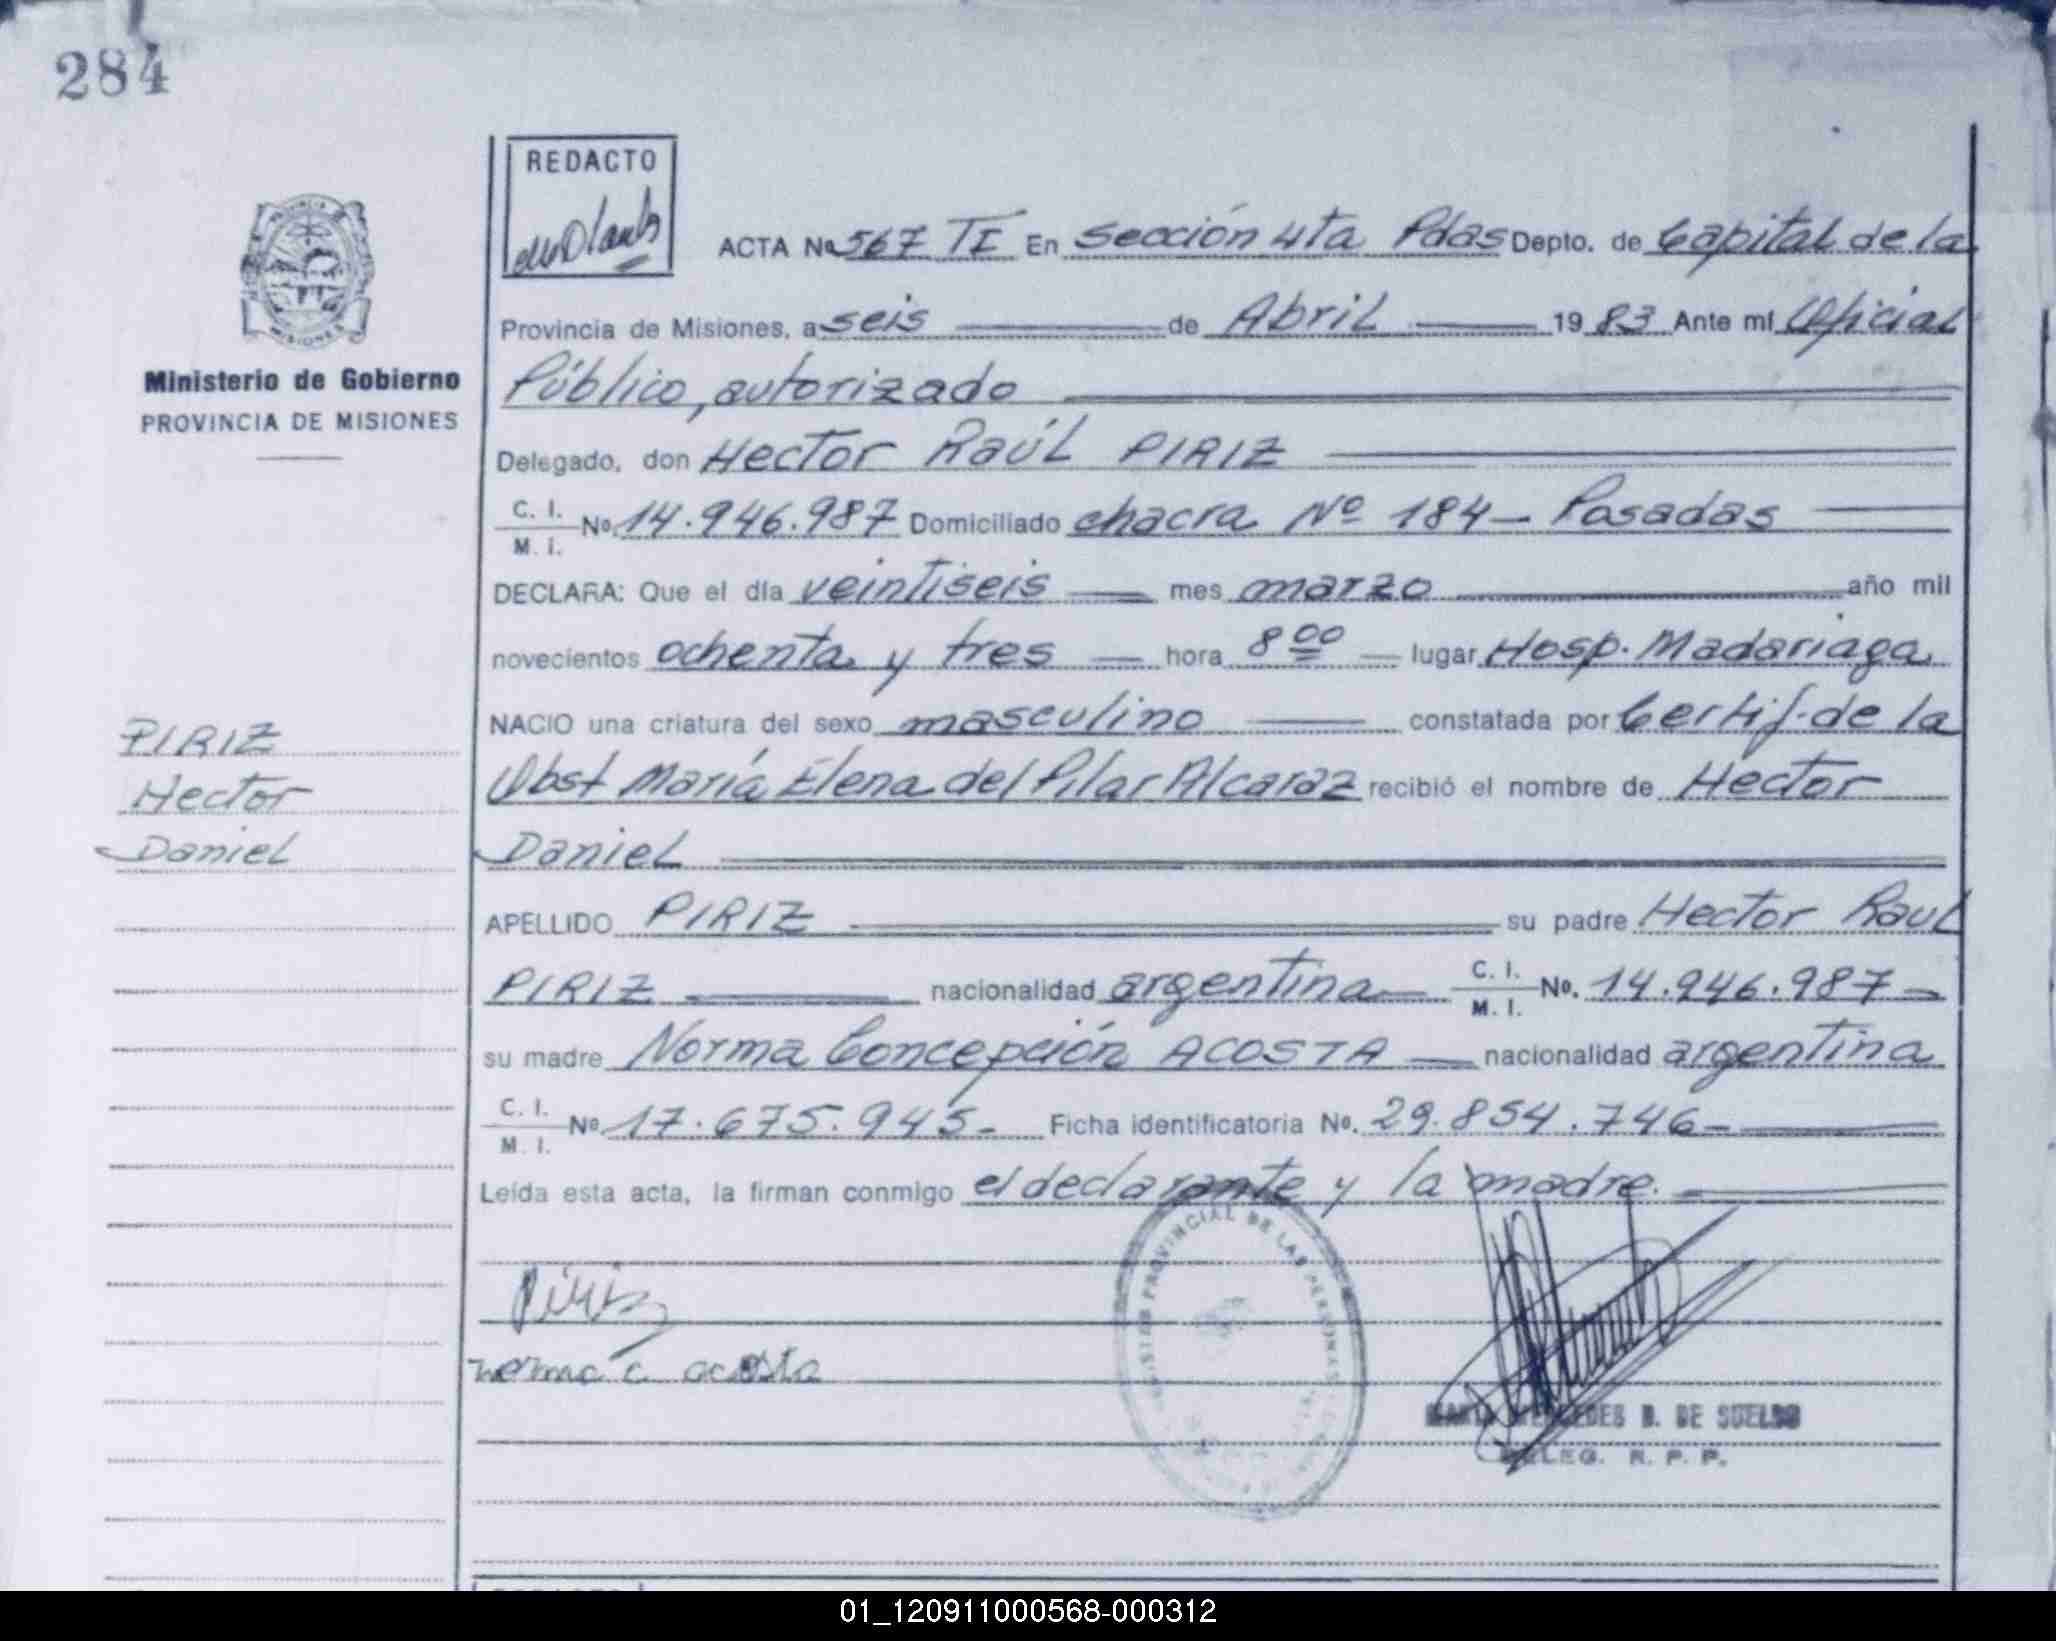 284
REDACTO
ACTA No 567 TI En Sección 4ta Pdas Depto. de Capital de la
Provincia de Misiones, a seis de Abril 1983 Ante mí Oficial
Público, autorizado
Ministerio de Gobierno
PROVINCIA DE MISIONES
Delegado, don Hector Raúl PIRIZ
C. I.
M. I. No. 14.946.987 Domiciliado chacra Nº 184 - Posadas
DECLARA: Que el día veintiseis mes marzo año mil
novecientos ochenta y tres hora 8 00 lugar Hosp. Madariaga
NACIO una criatura del sexo masculino constatada por Certif. de la
Obst María Elena del Pilar Alcaraz recibió el nombre de Hector
Daniel
PIRIZ
Hector
Daniel
APELLIDO PIRIZ su padre Hector Raul
PIRIZ nacionalidad argentina C. I.
M. I. No. 14.946.987 -
su madre Norma Concepción ACOSTA nacionalidad argentina
C. I.
M. I. No 17.675.945 - Ficha identificatoria No. 29.854.746 -
Leída esta acta, la firman conmigo el declarante y la madre.
Piriz
norma c. acosta
PROVINCIAL DE LAS PERSONAS
MERCEDES B. DE SUELDO
DELEG. R. P. P.
01_120911000568-000312